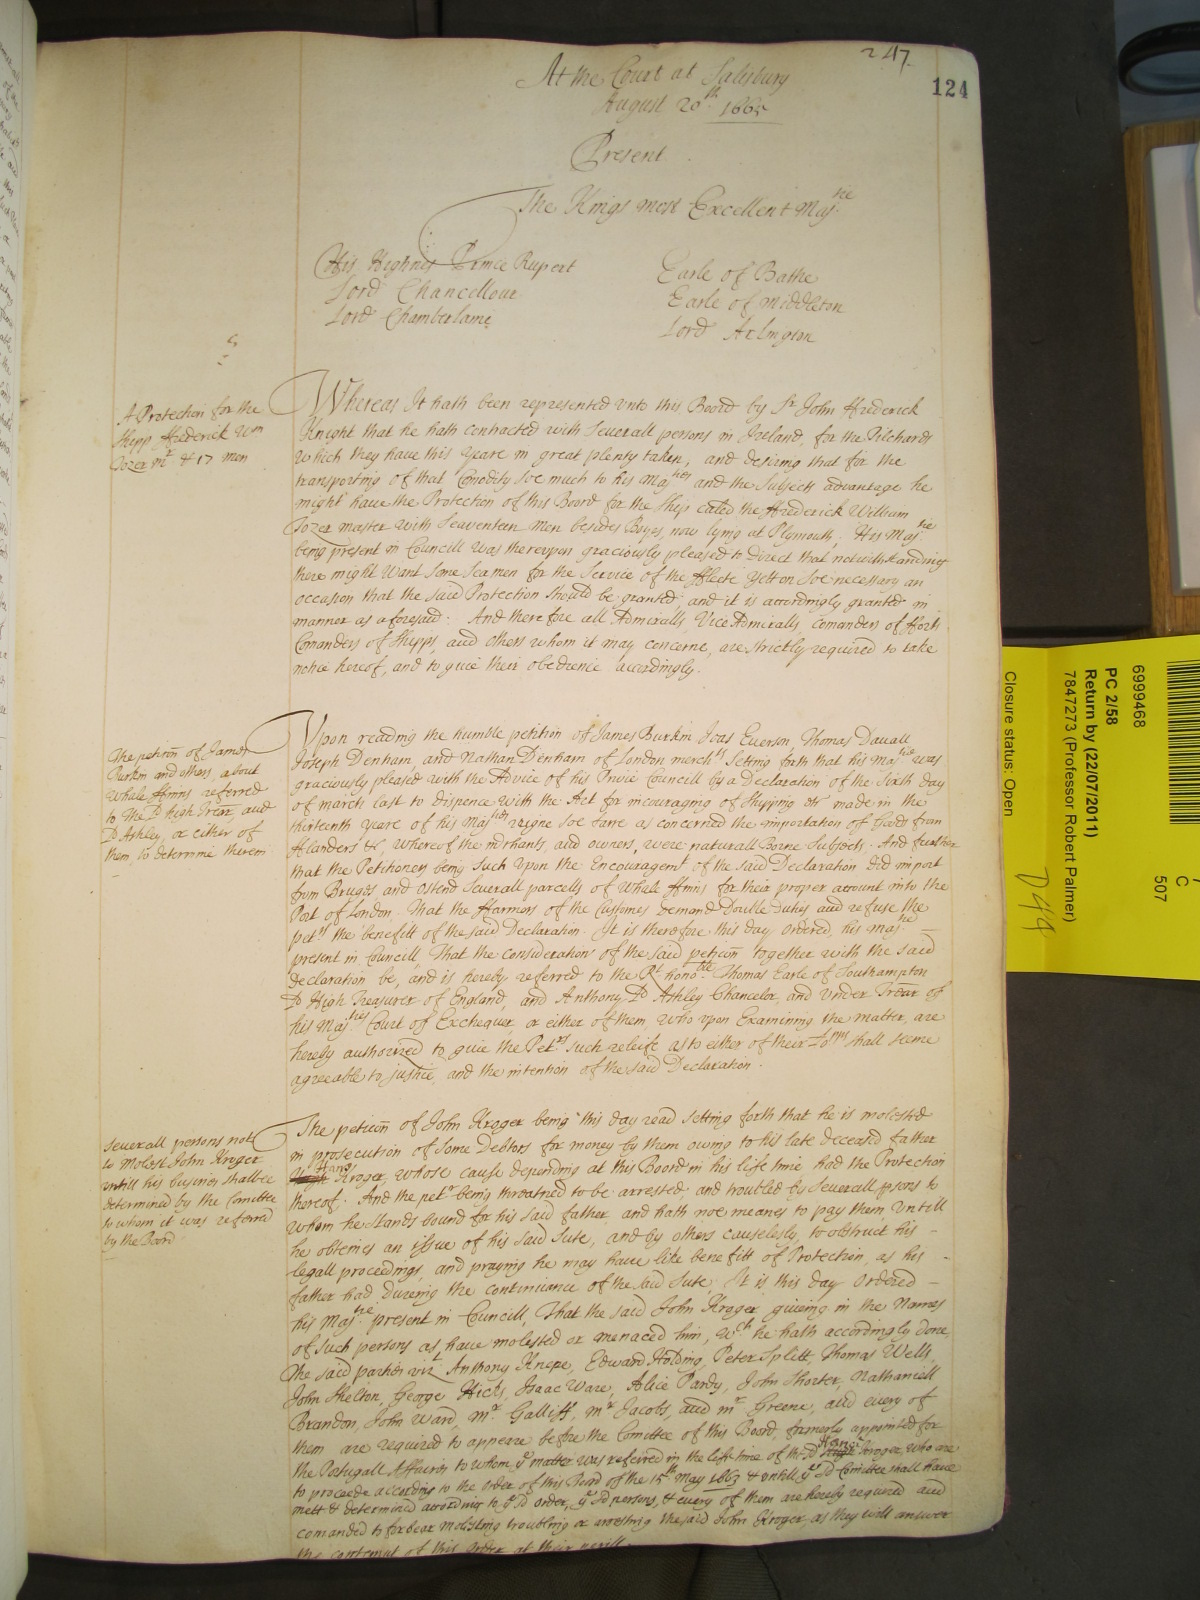 247.
124
At the Court at Salisbury
August 20th 1665
Present
The Kings most Excellent Maj:tie
His Highnes Prince Rupert
Lord Chancellour
Lord Chamberlaine
Earle of Bathe
Earle of Middleton
Lord Arlington
A Protection for the
Shipp Frederick Wm
Tozer mr & 17 men
Whereas It hath been represented vnto this Board by Sr John Frederick
Knight that he hath contracted with Severall persons in Ireland, for the Pilchards
which they have this yeare in great plenty taken, and desiring that for the
transporting of that Comodity soe much to his Majties and the Subjects advantage he
might have the Protection of this Board for the Ship called the Frederick William
Tozer master with Seaventeen men besides Boyes, now lying at Plymouth, His Maj:tie
being present in Councill was therevpon graciously pleased to Direct that notwithstanding
there might want some Seamen for the Service of the ffleete yett on soe necessary an
occasion that the said Protection should be granted, and it is accordingly granted in
manner as aforesaid. And therefore all Admiralls, Vice Admiralls, comanders of fforts
Comanders of Shipps, and others whom it may concerne, are strictly required to take
notice hereof, and to give their obedience accordingly.
The peticon of James
Burkin and others, about
Whale ffinns referred
to the Ld high Trear, and
Ld Ashley, or either of
them, to determine therein
Vpon reading the humble petition of James Burkin Joas Everson, Thomas Davall
Joseph Denham, and Nathan Denham of London merchts Setting forth that his Majtie was
graciously pleased with the Advice of his Privie Councill by a Declaration of the Sixth day
of march last to dispence with the Act for incouraging of Shipping &c made in the
thirteenth yeare of his Majties reigne soe farre as concerned the importation of Goods from
Flanders &c, whereof the merchants, and owners, were naturall Borne Subjects. And further
that the Petitioners being such vpon the Encouragemt of the said Declaration did import
from Bruges and ostend severall parcells of Whale ffinns for their proper account into the
Port of London. That the ffarmors of the Customes Demand Double duties and refuse the
petrs the benefitt of the said Declaration. It is therefore this day ordered, his Majtie
present in Councill, That the consideration of the said peticon together with the said
Declaration be, and is hereby referred to the Rt honoble Thomas Earle of Southampton
Ld High Treasurer of England, and Anthony Ld Ashley Chancelor, and vnder Trear of
his Majties Court of Exchequer, or either of them, who vpon Examining the matter, are
hereby authorized to give the Petrs such releife as to either of their Lopps shall seeme
agreeable to justice, and the intention of the said Declaration.
Severall persons not
to molest John Kroger
untill his busines shalbe
determined by the Comittee
to whom it was referred
by the Board
The peticon of John Kroger being this day read setting forth that he is molested
in prosecution of some Debtors for money by them owing to his late deceased father
Hans Kroger, whose cause depending at this Board in his life time had the Protection
thereof. And the petr being threatned to be arrested, and troubled by severall psons to
whom he stands bound for his said father, and hath noe meanes to pay them vntill
he obteines an issue of his said Sute, and by others causelesly, to obstruct his
legall proceedings, and praying he may have like benefitt of Protection, as his
father had during the continuance of the said Sute, It is this day ordered
his Majtie present in Councill, That the said John Kroger giveing in the Names
of such persons as have molested or menaced him, wch he hath accordingly done,
The said parties vizt Anthony Knepe, Edward Holding, Peter Splitt, Thomas Wells
John Shelton, George Hicks, Isaac Ware, Alice Pardy, John Shorter, Nathaniell
Brandon, John Ward, mr Galliff, mr Jacobs, and mr Greene, and every of
them are required to appeare before the Comittee of this Board, formerly appointed for
the Portugall Affaires to whom ye matter was referred in the life time of the sd Hans Kroger, who are
to proceede according to the order of this Board of the 15th May 1663 & vntill ye sd Comittee shall have
mett & determined according to ye sd order, ye sd persons, & every of them are hereby required and
comanded to forbear molesting troubling or arresting the said John Kroger as they will answer
the contempt of this order at their perill.
6999468
PC 2/58
Return by (22/07/2011)
7847273 (Professor Robert Palmer)
Closure status: Open
C
507
D49